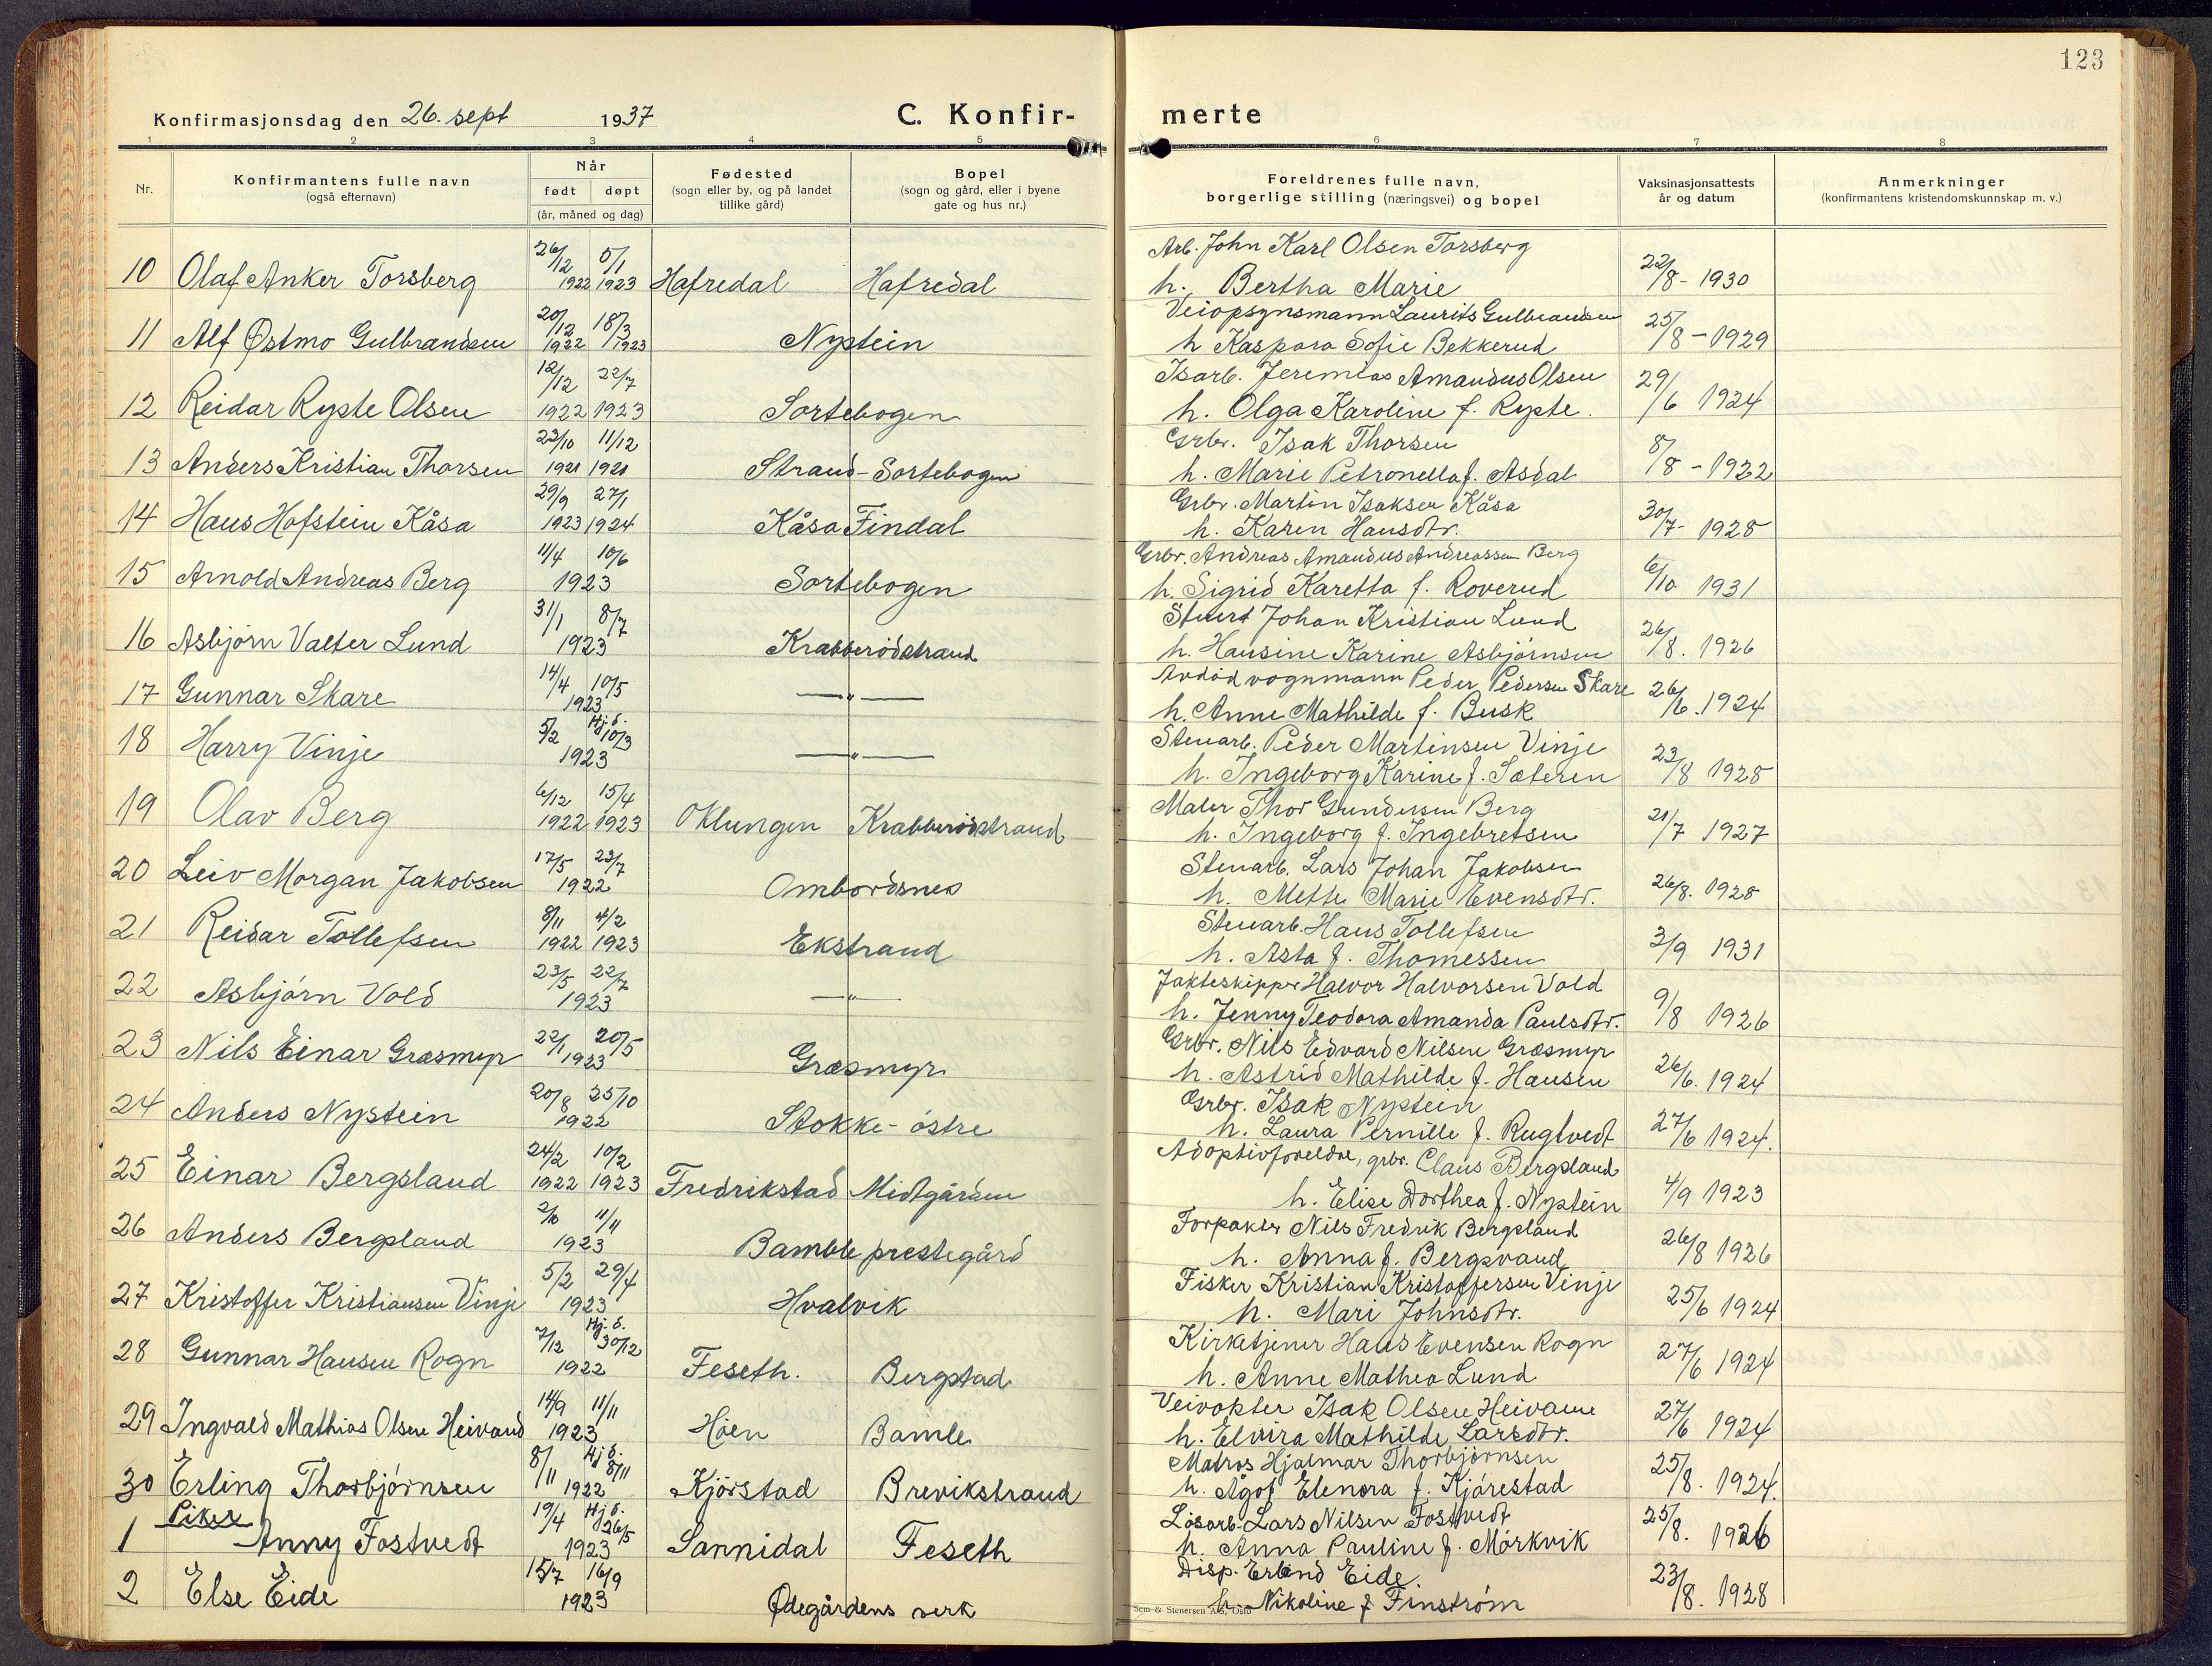 123
Konfirmasjonsdag den 26. sept 1937
C. Konfir-
merte
1 2 3 4 5 6 7 8
Nr.
Konfirmantens fulle navn
(også efternavn)
Når
født døpt
(år, måned og dag)
Fødested
(sogn eller by, og på landet
tillike gård)
Bopel
(sogn og gård, eller i byene
gate og hus nr.)
Foreldrenes fulle navn,
borgerlige stilling (næringsvei) og bopel
Vaksinasjonsattests
år og datum
Anmerkninger
(konfirmantens kristendomskunnskap m. v.)
26/12 5/1 Arb. John Karl Olsen Torsberg
10 Olaf Anker Torsberg 1922 1923 Hafredal Hafredal h. Bertha Marie 22/8 - 1930
20/12 18/3 Veiopsynsmann Laurits Gulbrandsen
11 Alf Østmo Gulbrandsen 1922 1923 Nystein h Kaspara Sofie Bekkerud 25/8 - 1929
12/12 22/7 Isarb. Jeremias Amandus Olsen
12 Reidar Rypte Olsen 1922 1923 Sortebogen h. Olga Karoline f. Rypte. 29/6 1924
23/10 11/12 Grbr. Isak Thorsen
13 Anders Kristian Thorsen 1921 1921 Strand - Sortebogen h. Marie Petronella f. Asdal 8/8 - 1922
29/9 27/1 Grbr. Martin Isaksen Kåsa
14 Hans Hofstein Kåsa 1923 1924 Kåsa Findal h. Karen Hansdtr. 30/7 - 1928
11/4 10/6 Grbr. Andreas Amandus Andreassen Berg
15 Arnold Andreas Berg 1923 Sortebogen h. Sigrid Karetta f. Roverud 6/10 1931
31/1 8/7 Stuert Johan Kristian Lund
16 Asbjørn Valter Lund 1923 Krabberødstrand h. Hansine Karine Asbjørnsen 26/8. 1926
14/4 10/5 Avdød vognmann Peder Pedersen Skare
17 Gunnar Skare 1923 — " — h. Anne Mathilde f. Busk 26/6. 1924
5/2 Hj. d. 10/3 Stenarb. Peder Martinsen Vinje
18 Harry Vinje 1923 — " — h. Ingeborg Karine f. Sæteren 23/8 1928
6/12 15/4 Maler Thor Gundersen Berg
19 Olav Berg 1922 1923 Oklungen Krabberødstrand h. Ingeborg f. Ingebretsen 21/7 1927
17/5 23/7 Stenarb. Lars Johan Jakobsen
20 Leiv Morgan Jakobsen 1922 Ombordsnes h. Mette Marie Evensdtr. 26/8. 1928
8/11 4/2 Stenarb. Hans Tollefsen
21 Reidar Tollefsen 1922 1923 Ekstrand h. Asta f. Thomessen 3/9 1931
23/5 22/7 Jakteskipper Halvor Halvorsen Vold
22 Asbjørn Vold 1923 — " — h. Jenny Teodora Amanda Paulsdtr. 9/8 1926
22/1 20/5 Grbr. Nils Edvard Nilsen Græsmyr
23 Nils Einar Græsmyr 1923 Græsmyr h. Astrid Mathilde f. Hansen 26/6. 1924
20/8 25/10 Grbr. Isak Nystein
24 Anders Nystein 1922 Stokke - østre h. Laura Pernille f. Rugtvedt 27/6 1924.
24/2 10/2 Adoptivforeldre, grbr. Claus Bergsland
25 Einar Bergsland 1922 1923 Fredrikstad Midtgården h. Elise Dorthea f. Nystein 4/9 1923
2/10 11/11 Forpakter Nils Fredrik Bergsland
26 Anders Bergsland 1923 Bamble prestegård h. Anna f. Bergsvand 26/8 1926
5/2 29/4 Fisker Kristian Kristoffersen Vinje
27 Kristoffer Kristiansen Vinje 1923 Hvalvik h. Mari Johnsdtr. 25/6 1924
7/12 Hj. d. 30/12 Kirketjener Hans Evensen Rogn
28 Gunnar Hansen Rogn 1922 Feseth. Bergstad h. Anne Mathea Lund 27/6 1924
14/9 11/11 Veivokter Isak Olsen Heivann
29 Ingvald Mathias Olsen Heivand 1923 Høen Bamle h. Elvira Mathilde Larsdtr. 27/6 1924
8/11 Hj d. 8/11 Matros Hjalmar Thorbjørnsen
30 Erling Thorbjørnsen 1922 Kjørstad Brevikstrand h. Ågot Elenora f. Kjørestad 25/8. 1924.
Piker 19/4 Hj. d. 26/5 Løsarb. Lars Nilsen Fostvedt
1 Anny Fostvedt 1923 Sannidal Feseth h. Anna Pauline f. Mørkvik 25/8. 1926
15/7 16/9 Disp. Erlend Eide.
2 Else Eide 1923 Ødegårdens verk h. Nikoline f Finstrøm 23/8. 1928
Sem & Stenersen A/S, Oslo